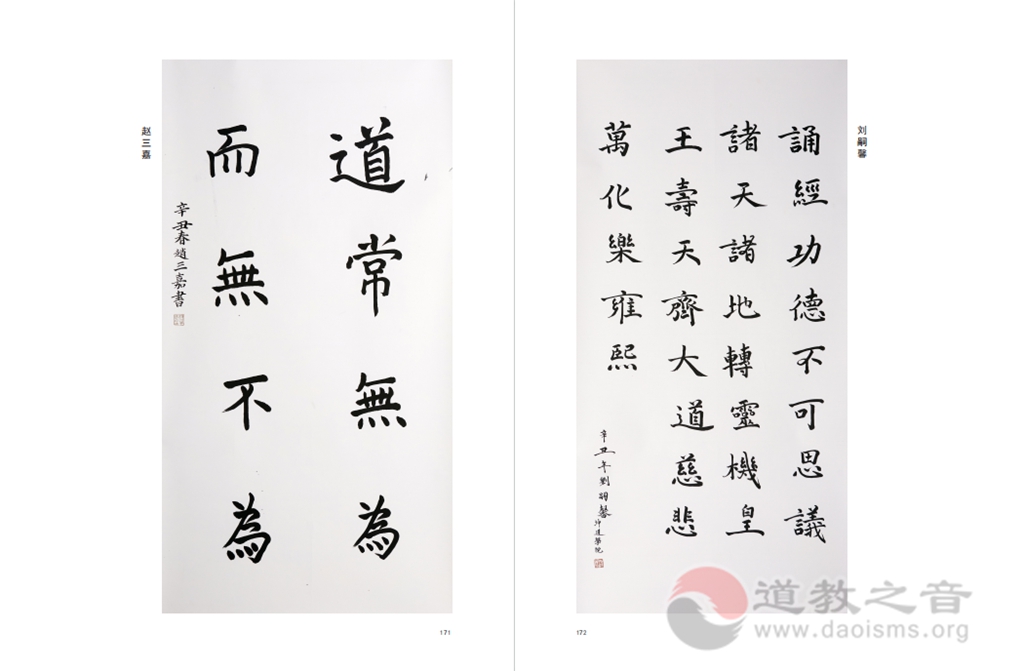 赵三嘉
道常無為
而無不為
辛丑春趙三嘉書
171
刘嗣馨
誦經功德不可思議
諸天諸地轉靈機皇
王壽天齊大道慈悲
萬化樂雍熙
辛丑年劉嗣馨坤道學院
172
道教之音
www.daoisms.org